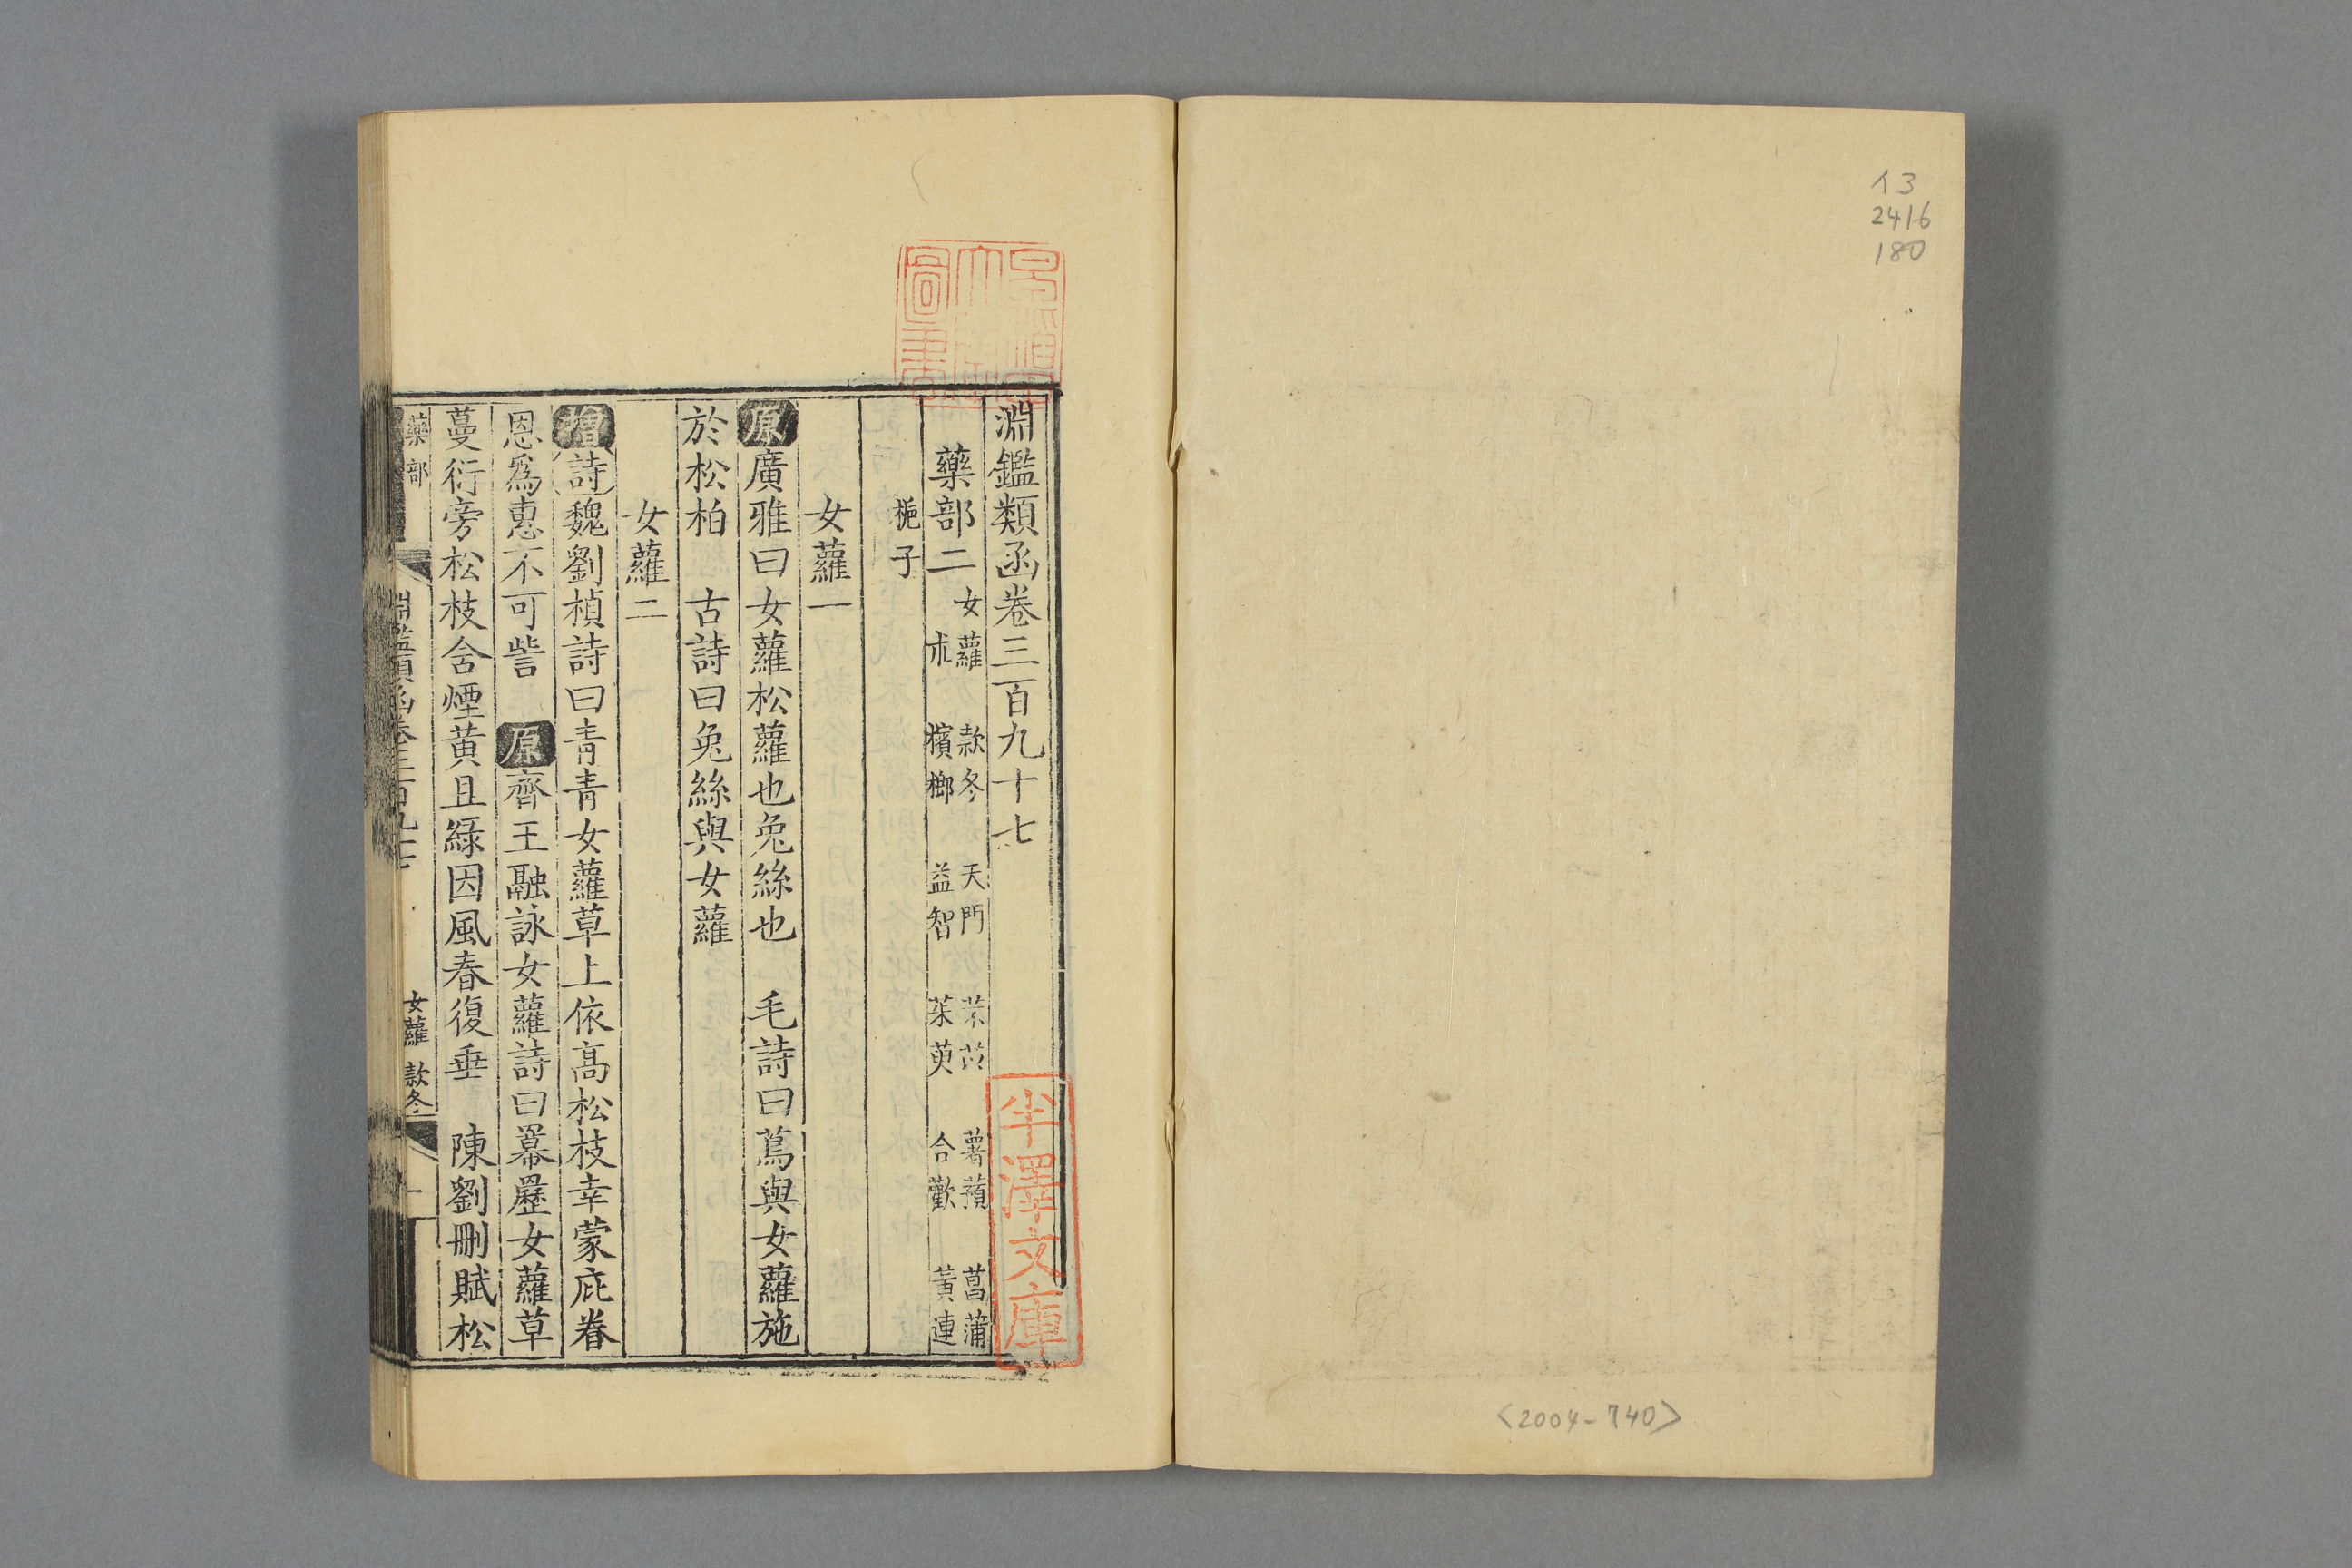 イ3
2416
180
<2004-740>
淵鑑類函卷三百九十七
藥部二 女蘿 款冬 天門 芣苢 薯蕷 菖蒲
朮 檳榔 益智 茱萸 合歡 黃連
梔子
女蘿一
原廣雅曰女蘿松蘿也兔絲也 毛詩曰蔦與女蘿施
於松柏 古詩曰兔絲與女蘿
女蘿二
增詩魏劉楨詩曰青青女蘿草上依高松枝幸蒙庇眷
恩爲惠不可訾 原齊王融詠女蘿詩曰羃䍥女蘿草
蔓衍旁松枝含煙黃且綠因風春復垂 陳劉刪賦松
藥部 淵鑑類函卷三百九十七 女蘿 款冬 一
圖書
半澤文庫